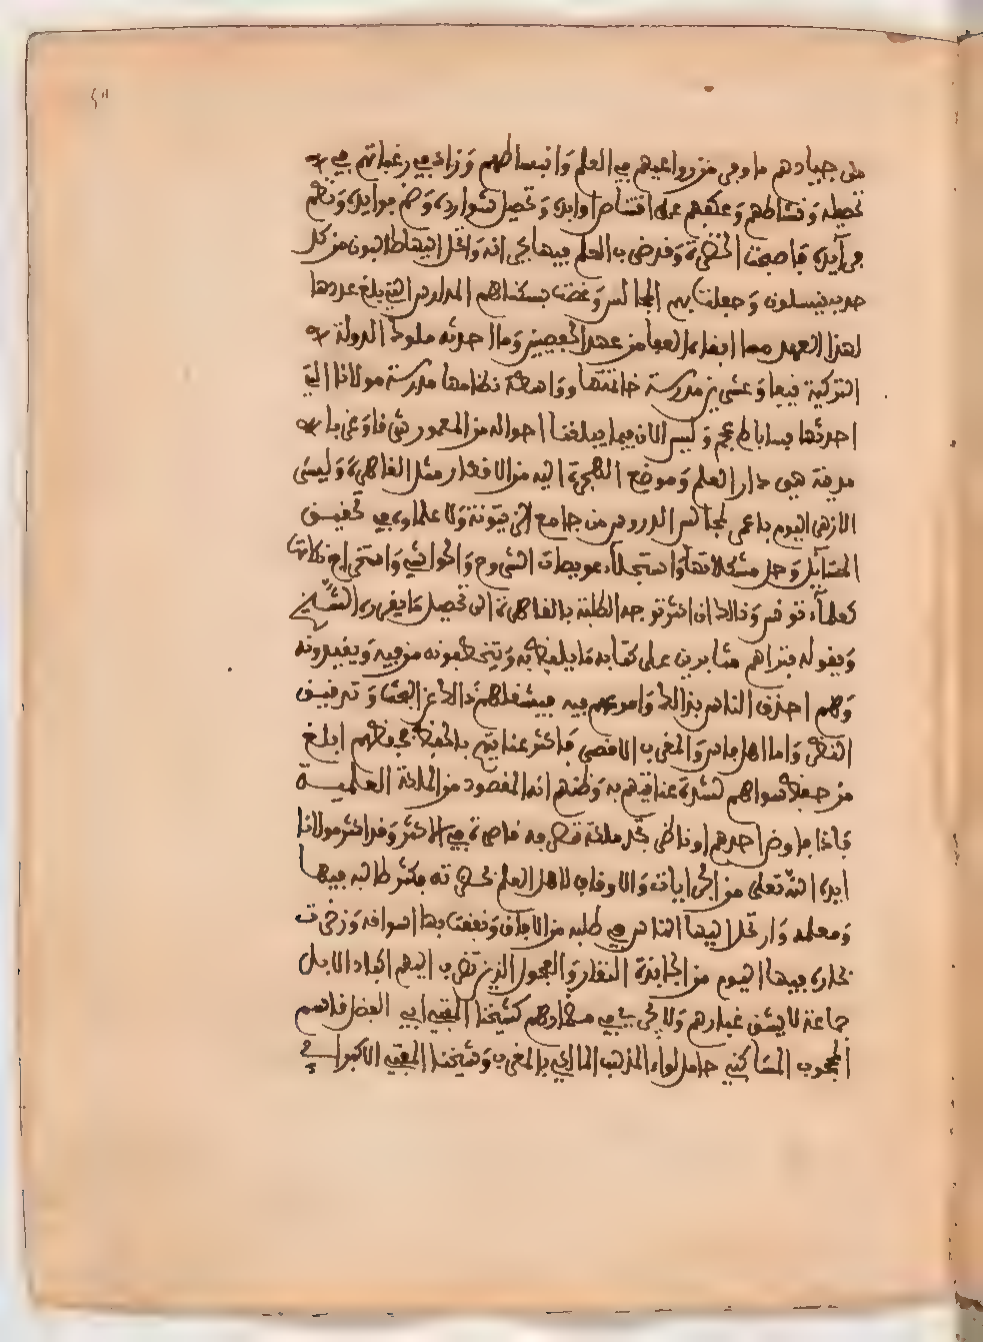 على جيادهم ما وفى من دواعيهم في العلم وانبساطهم وزاد في رغباتهم في
تحصيله ونشاطهم وعكفهم على اقتناص اوابده وتحصيل شوارده وضم فوايده ونظم
فرآيده فاصبحت الحضرة وقد ضرب العلم فيها بجرانه وانحل اليها طالبون من كل
حدب ينسلون وجعلت بهم المجالس وغصت بسكناهم المدارس التي بلغ عددها
لهذا العهد مما ابقاه العفا من عهد الحفصيين وما احدثه ملوك الدولة
التركية نيفا وعشرين مدرسة خاتمتها وواسطة نظامها مدرسة مولانا التي
احدثها بساباط عجم وليس الان فيما يبلغنا احواله من المعمور شرقا وغربا
مدينة هي دار العلم وموضع الهجرة اليه من الاقطار مثل القاهرة وليس
الازهر اليوم باعمر بمجالس الدروس من جامع الزيتونة ولا علماوه في تحقيق
المسآيل وحل مشكلاتها واستجلاء عويصات الشروح والحواشي واستخراج نكاتها
كعلمآء تونس وذالك ان اكثر توجه الطلبة بالقاهرة الى تحصيل ما يقرره الشيخ
ويقوله فتراهم مثابرين على كتابه ما يلفظ به ويتخطفونه من فيه ويقيدونه
وهم احذق الناس بذالك واسرعهم فيه فيشغلهم ذالك عن البحث وتدقيق
النظر واما اهل فاس والمغرب الاقصى فاكثر عنايتهم بالحفظ فحفظهم ابلغ
من حفظ سواهم لشدة عنايتهم به وظنهم انه المقصود من الملكة العلمية
فاذا فاوض احدهم او ناظر تجد ملكة نظره قاصرة في الاكثر وقد اكثر مولانا
ايده الله تعلى من الجرايات والاوقاف لاهل العلم بحضرته فكثر طالبه فيها
ومعلمه وارتحل اليها الناس في طلبه من الافاق ونفقت بها اسواقه وزخرت
بحاره فيها اليوم من الجهابذة النقاد والفحول الذين تضرب اليهم اكباد الابل
جماعة لا يشق غبارهم ولا يجرى في مضمارهم كشيخنا الفقيه ابي الفضل قاسم
المحجوب المساكني حامل لواء المذهب المالكي بالمغرب وشيخنا الفقيه الاكبر ابي